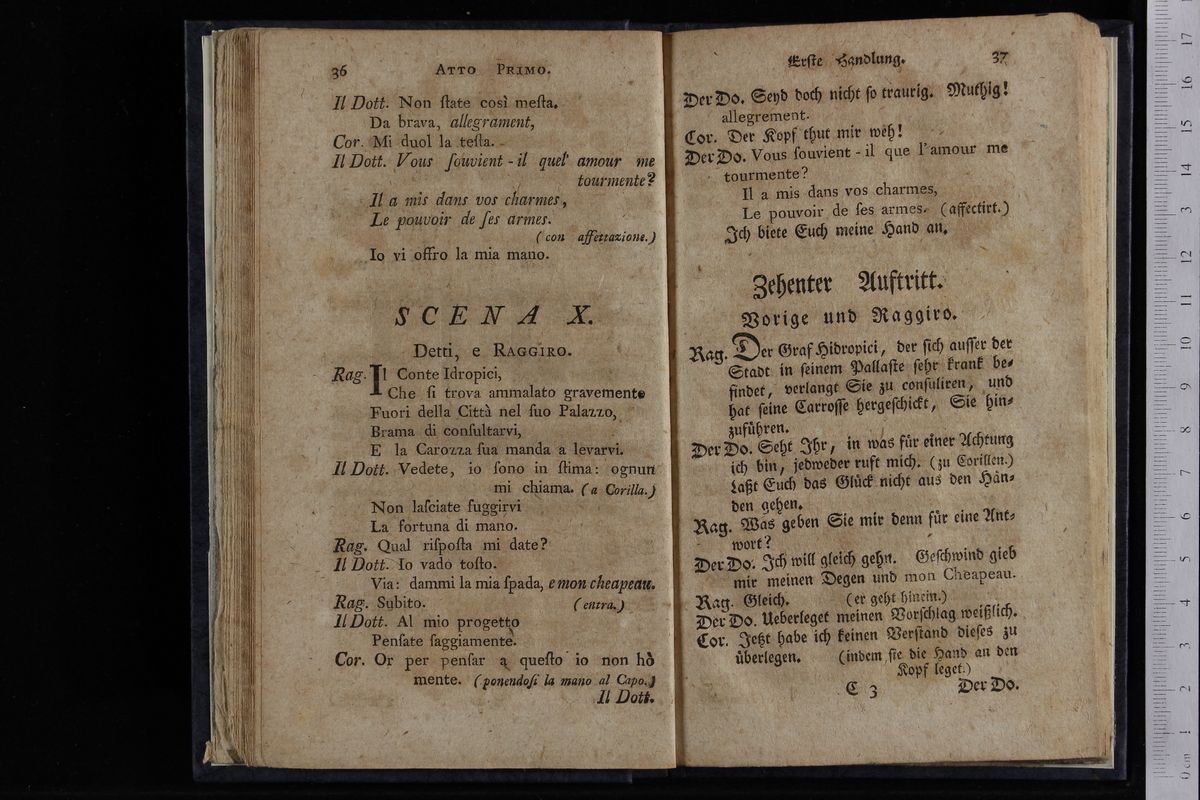 36 ATTO PRIMO.
Il Dott. Non ſtate così meſta.
Da brava, allegrament,
Cor. Mi duol la teſta.
Il Dott. Vous ſouvient-il quel' amour me
tourmente?
Il a mis dans vos charmes,
Le pouvoir de ſes armes.
(con affettazione.)
Io vi offro la mia mano.
SCENA X.
Detti, e RAGGIRO.
Rag. Il Conte Idropici,
Che ſi trova ammalato gravemente
Fuori della Città nel ſuo Palazzo,
Brama di conſultarvi,
E la Carozza ſua manda a levarvi.
Il Dott. Vedete, io ſono in ſtima: ognun
mi chiama. (a Corilla.)
Non laſciate fuggirvi
La fortuna di mano.
Rag. Qual riſpoſta mi date?
Il Dott. Io vado toſto.
Via: dammi la mia ſpada, e mon cheapeau.
Rag. Subito. (entra.)
Il Dott. Al mio progetto
Penſate ſaggiamente.
Cor. Or per penſar a queſto io non hò
mente. (ponendoſi la mano al Capo.)
Il Dott.
Erſte Handlung. 37
Der Do. Seyd doch nicht ſo traurig. Muthig!
allegrement.
Cor. Der Kopf thut mir weh!
Der Do. Vous ſouvient-il que l'amour me
tourmente?
Il a mis dans vos charmes,
Le pouvoir de ſes armes. (affectirt.)
Ich biete Euch meine Hand an.
Zehenter Auftritt.
Vorige und Raggiro.
Rag. Der Graf Hidropici, der ſich auſſer der
Stadt in ſeinem Pallaſte ſehr krank be-
findet, verlangt Sie zu conſuliren, und
hat ſeine Carroſſe hergeſchickt, Sie hin-
zuführen.
Der Do. Seht Ihr, in was für einer Achtung
ich bin, jedweder ruft mich. (zu Corillen.)
Laßt Euch das Glück nicht aus den Hän-
den gehen.
Rag. Was geben Sie mir denn für eine Ant-
wort?
Der Do. Ich will gleich gehn. Geſchwind gieb
mir meinen Degen und mon Cheapeau.
Rag. Gleich. (er geht hinein.)
Der Do. Ueberleget meinen Vorſchlag weißlich.
Cor. Jetzt habe ich keinen Verſtand dieſes zu
überlegen. (indem ſie die Hand an den
Kopf leget.)
C 3 Der Do.
0 cm 1 2 3 4 5 6 7 8 9 10 11 12 13 14 15 16 17